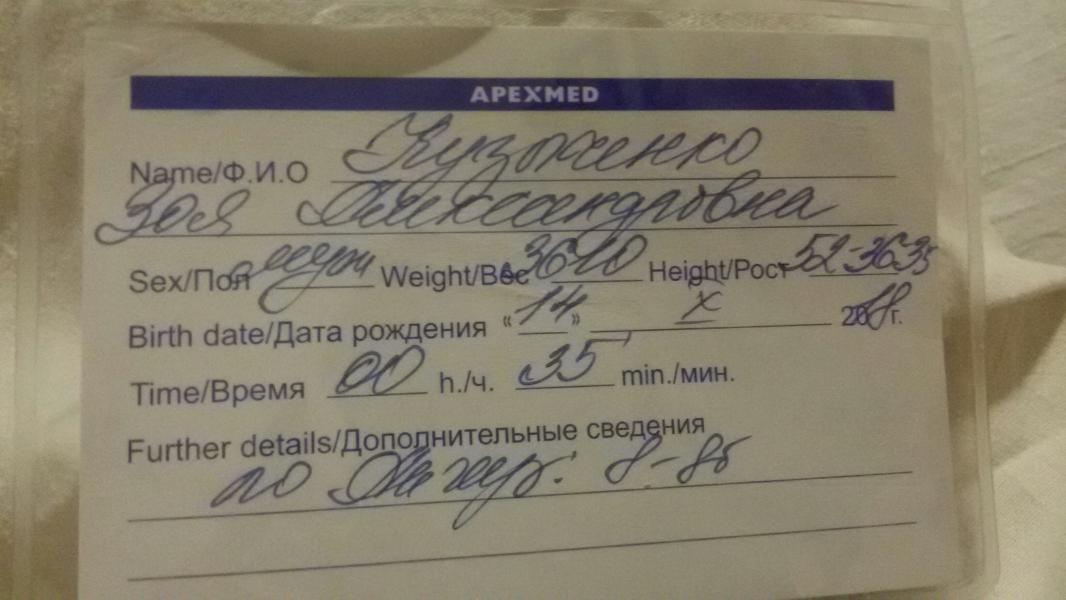 APEXMED
Name/Ф.И.О Кузьменко
Зоя Александровна
Sex/Пол муж Weight/Вес 3640 Height/Рост 52-36-35
Birth date/Дата рождения «14» X 2018г.
Time/Время 00 h./ч. 35 min./мин.
Further details/Дополнительные сведения
по Апгар: 8-8б